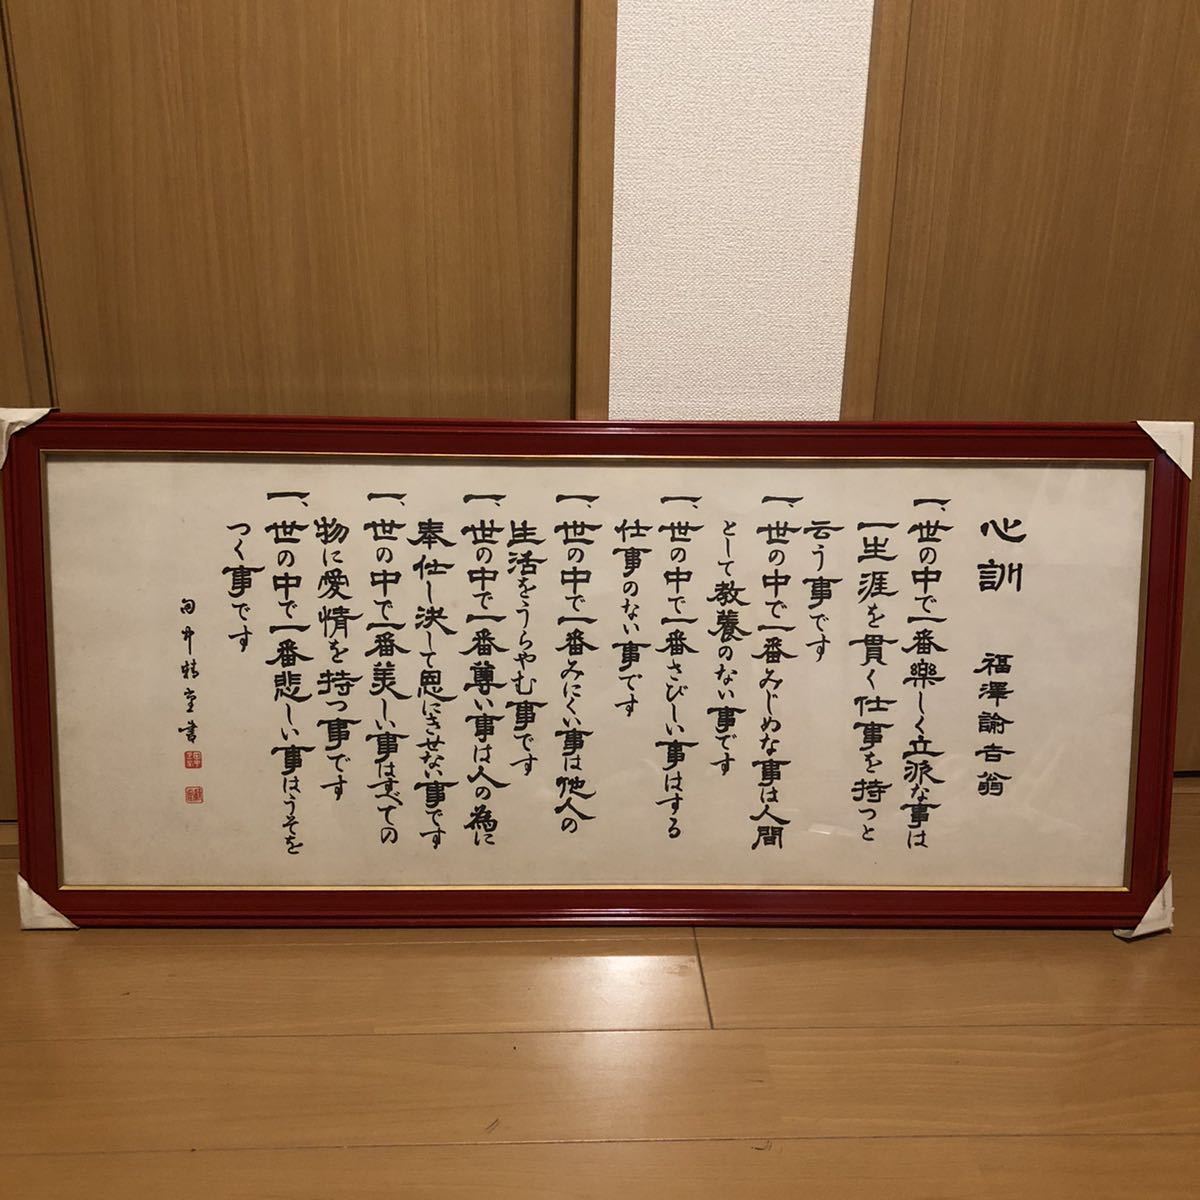 心訓　福澤諭吉翁
一、世の中で一番樂しく立派な事は
一生涯を貫く仕事を持つと
云う事です
一、世の中で一番みじめな事は人間
として教養のない事です
一、世の中で一番さびしい事はする
仕事のない事です
一、世の中で一番みにくい事は他人の
生活をうらやむ事です
一、世の中で一番尊い事は人の為に
奉仕し決して恩にきせない事です
一、世の中で一番美しい事はすべての
物に愛情を持つ事です
一、世の中で一番悲しい事はうそを
つく事です
書